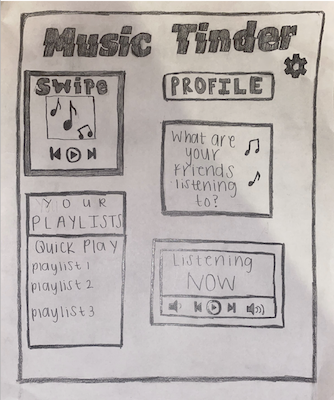 Music Tinder
Swipe
PROFILE
What are
your
friends
listening
to?
YOUR
PLAYLISTS
Quick Play
playlist 1
playlist 2
playlist 3
Listening
NOW